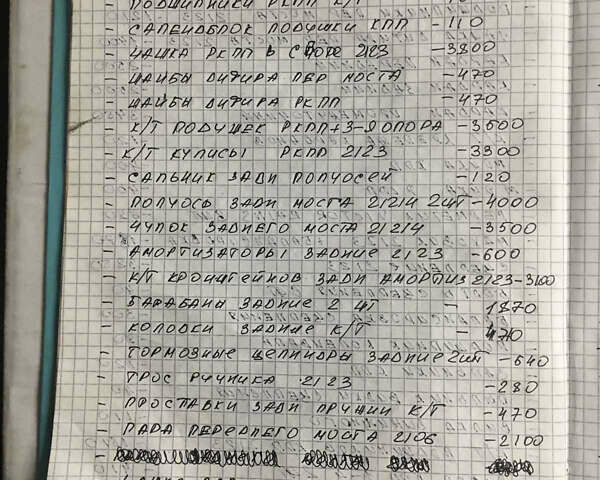 - ПОДШИПНИКИ РКПП К/Т
- САЛЕНДБЛОК ПОДУШКИ КПП -110
- ЧАШКА РКПП В СБОРЕ 2123 -3800
- ШАЙБЫ ДИФИРА ПЕР МОСТА -470
- ШАЙБЫ ДИФИРА РКПП -470
- К/Т ПОДУШЕК РКПП+3-Я ОПОРА -3500
- К/Т КУЛИСЫ РКПП 2123 -3300
- САЛЬНИК ЗАДИ ПОЛУОСЕЙ -120
- ПОЛУОСЬ ЗАДИ МОСТА 21214 2ШТ -4000
- ЧУЛОК ЗАДНЕГО МОСТА 21214 -3500
- АМОРТИЗАТОРЫ ЗАДНИЕ 2123 -600
- К/Т КРОНШТЕЙНОВ ЗАДИ АМОРТИЗ 2123-3100
- БАРАБАНЫ ЗАДНИЕ 2 ШТ - 1870
- КОЛОДКИ ЗАДНИЕ К/Т - 470
- ТОРМОЗНЫЕ ЦЕЛИНДРЫ ЗАДНИЕ 2ШТ -640
- ТРОС РУЧНИКА 2123 -280
- ПРОСТАВКИ ЗАДИ ПРУЖИН К/Т -470
- ПАРА ПЕРЕДНЕГО МОСТА 2106 -2100